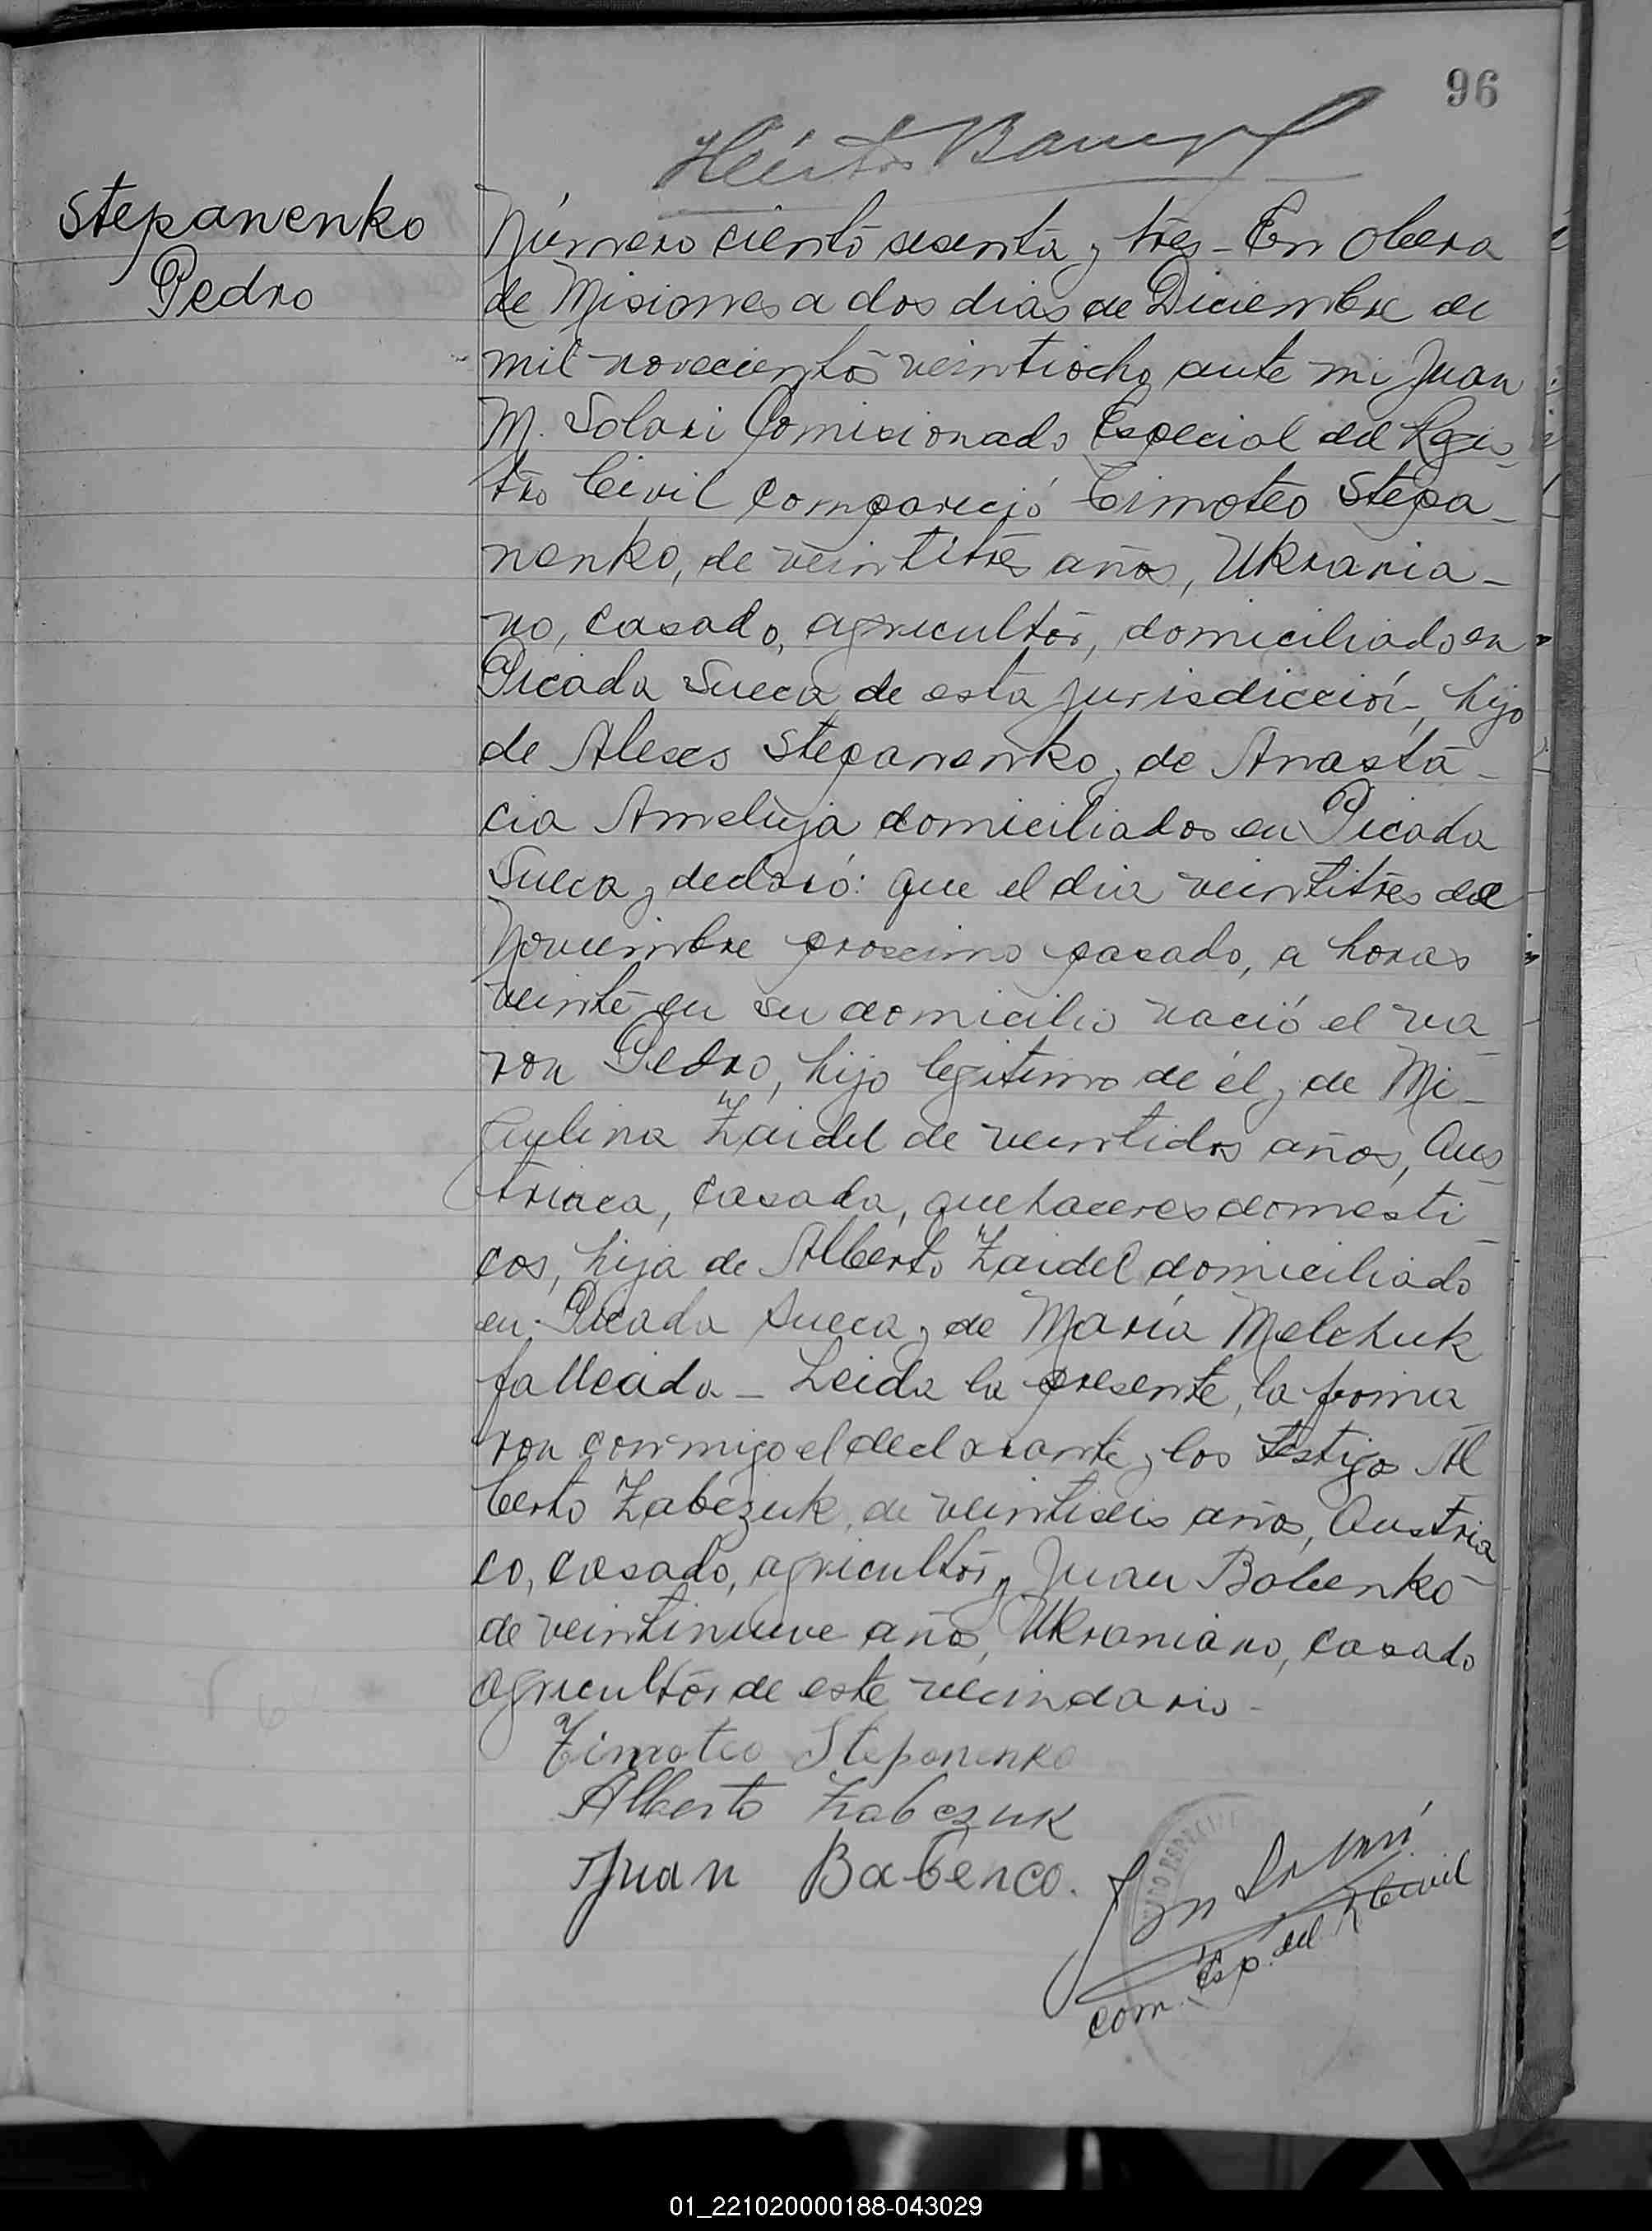 96
Stepanenko
Pedro
Número ciento sesenta y tres - En Obera
de Misiones a dos dias de Diciembre de
mil novecientos veintiocho, ante mi Juan
M. Solari Comisionado Especial del Regis-
tro Civil compareció Timoteo Stepa-
nenko, de veintitrés años, Ukrania-
no, casado, agricultor, domiciliado en
Picada Sueca de esta jurisdicción, hijo
de Alexes Stepanenko y de Anasta-
cia Ameluja domiciliados en Picada
Sueca y declaró: que el dia veintitres del
Noviembre proximo pasado, a horas
veinte en su domicilio nació el va-
ron Pedro, hijo legitimo de él y de Mi-
Zaidel de veintidos años, Aus-
triaca, casada, quehaceres domesti-
cos, hija de Alberto Zaidel domiciliado
en Picada Sueca y de María Melchuk
fallecida - Leida la presente, la firma-
ron conmigo el declarante y los testigos Al-
berto Zabczuk, de veintiseis años, Austria-
co, casado, agricultor y Juan Babenko
de veintinueve años, Ukraniano, casado
agricultor de este vecindario -
Timoteo Stepanenko
Alberto Zabczuk
Juan Babenco.
Com. Esp. del R. Civil
01_221020000188-043029